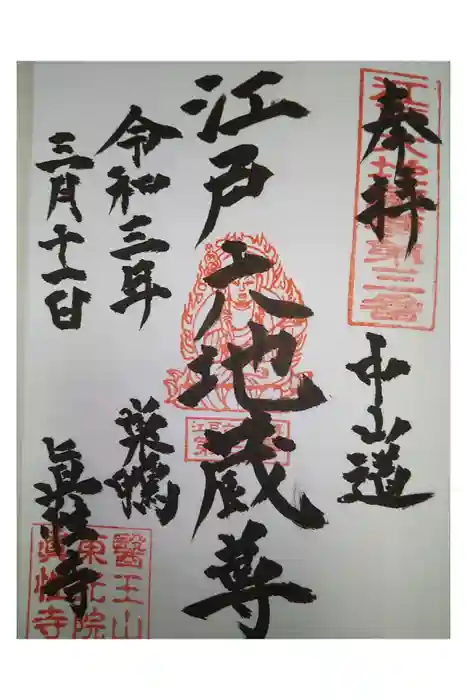 奉拝
江戸六地蔵尊第三番
中山道
江戸六地蔵尊
令和三年
三月十一日
巣鴨
眞性寺
醫王山
東光院
眞性寺